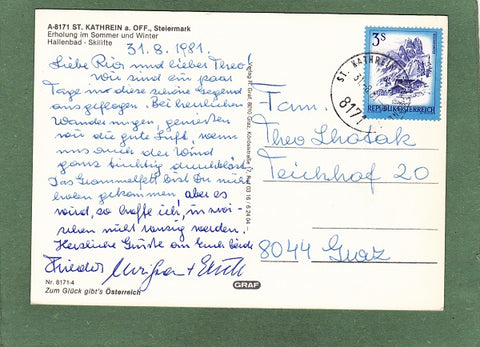 A-8171 ST. KATHREIN a. OFF., Steiermark
Erholung im Sommer und Winter
Hallenbad · Skilifte
31. 8. 1981.
Liebe Rior und lieber Theo!
Wir sind ein paar
Tage in diese schöne Gegend
aus geflogen. Bei herrlichen
Wanderungen, genießen
wir die gute Luft, wenn
uns auch der Wind
ganz tüchtig durchbläst.
Das Grammelfett bist Du nicht
holen gekommen aber es
wird, so hoffe ich, in zwi-
schen nicht ranzig werden.
Herzliche Grüße an Euch beide
Frieder
Nr. 8171-4
Zum Glück gibt's Österreich
GRAF
Verlag H. Graf, 8010 Graz
3S
REPUBLIK ÖSTERREICH
ST. KATHREIN
8171
Fam.
Theo Lhotak
Teichhof 20
8044 Graz